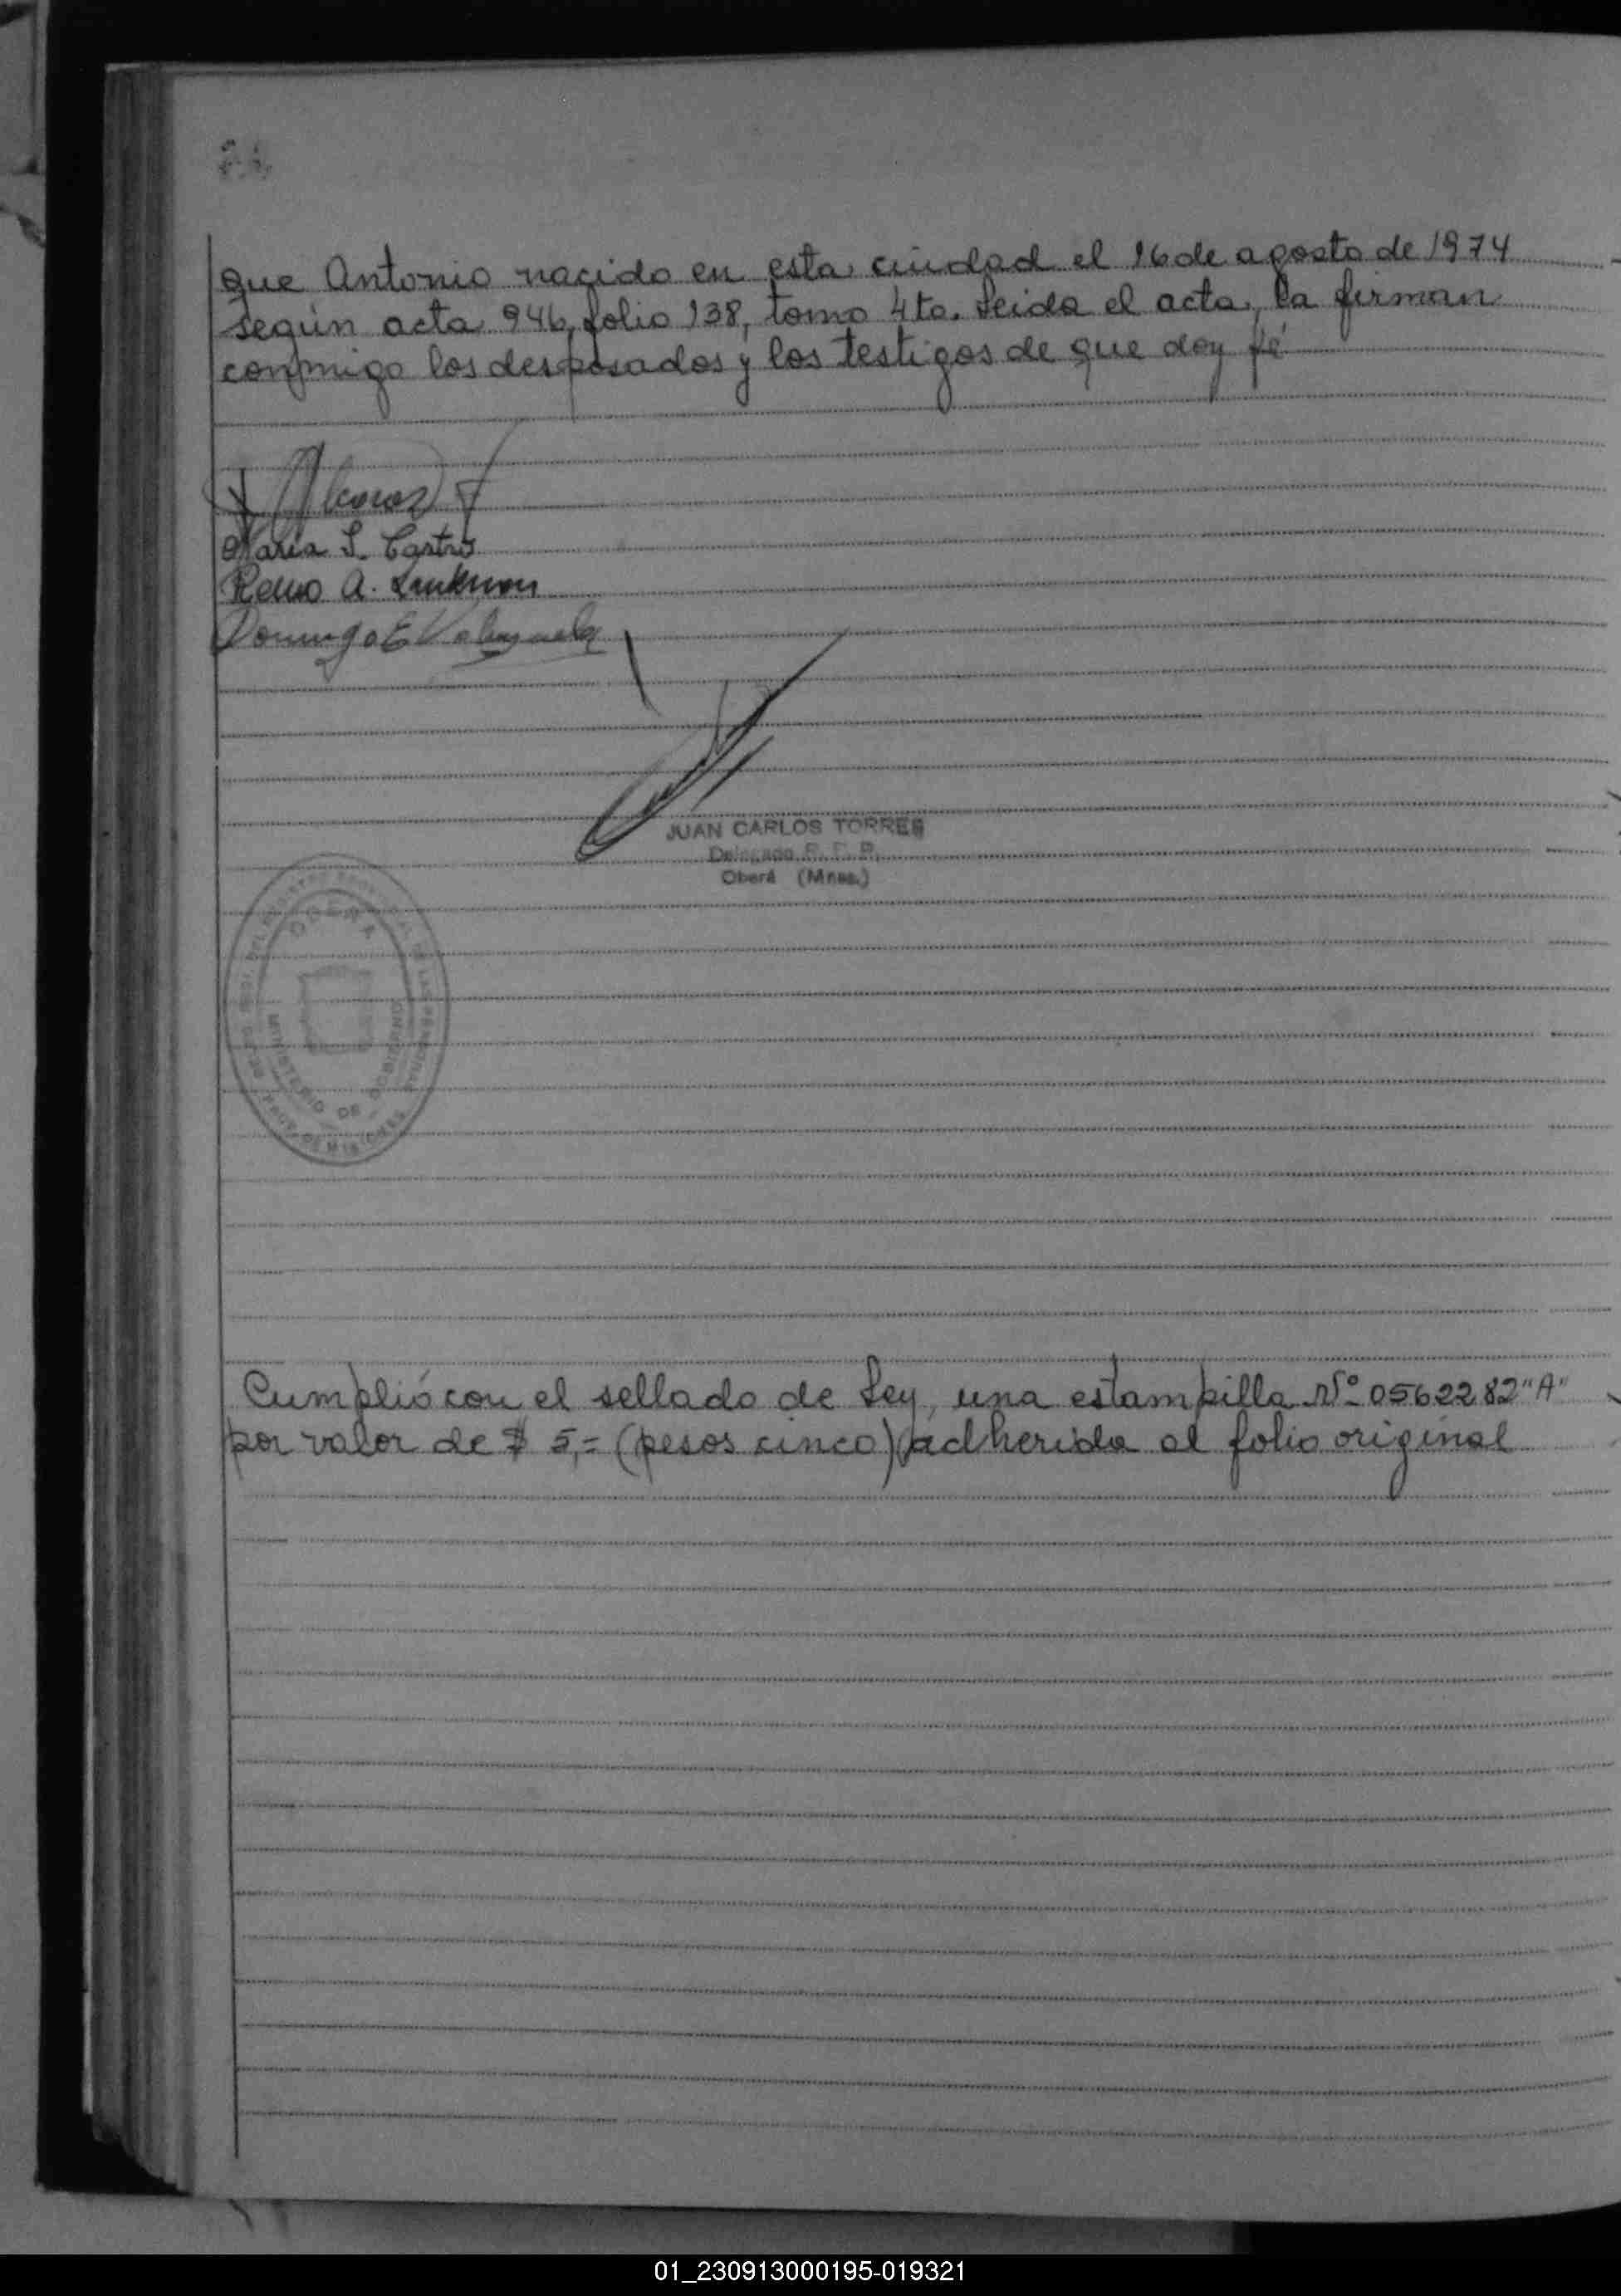 que Antonio nacido en esta ciudad el 16 de agosto de 1974
según acta 946, folio 138, tomo 4to. Leida el acta, la firman
conmigo los desposados y los testigos de que doy fé
Maria S. Castro
Remo A.
Domingo E Valenzuela
JUAN CARLOS TORRES
Delegado R. P. P.
Oberá (Mnes.)
OBERA
MINISTERIO DE GOBIERNO
PROV. DE MISIONES
Cumplió con el sellado de Ley, una estampilla Nº 0562282 "A"
por valor de $ 5,= (pesos cinco) adherida al folio original
01_230913000195-019321